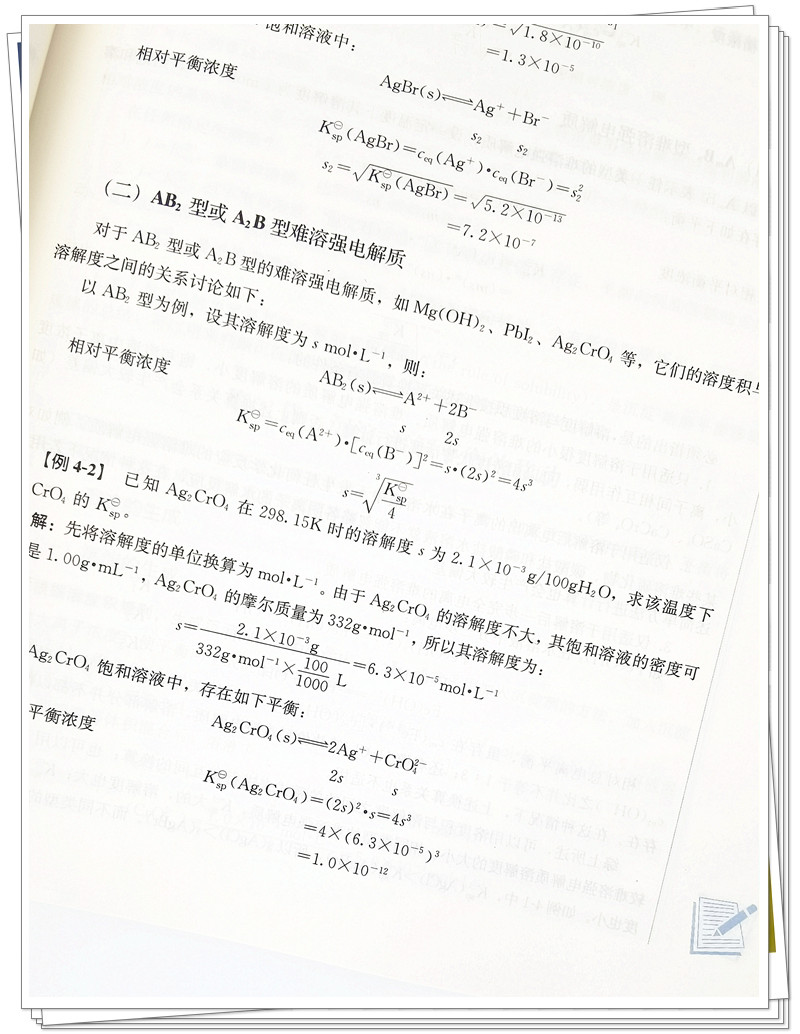 饱和溶液中：
=√1.8×10⁻¹⁰
=1.3×10⁻⁵
AgBr(s)⇌Ag⁺+Br⁻
相对平衡浓度 s₂ s₂
K⊖sp(AgBr)=ceq(Ag⁺)•ceq(Br⁻)=s₂²
s₂=√K⊖sp(AgBr)=√5.2×10⁻¹³
=7.2×10⁻⁷
（二）AB₂ 型或 A₂B 型难溶强电解质
对于 AB₂ 型或 A₂B 型的难溶强电解质，如 Mg(OH)₂、PbI₂、Ag₂CrO₄ 等，它们的溶度积与
溶解度之间的关系讨论如下：
以 AB₂ 型为例，设其溶解度为 s mol•L⁻¹，则：
AB₂(s)⇌A²⁺+2B⁻
相对平衡浓度 s 2s
K⊖sp=ceq(A²⁺)•[ceq(B⁻)]²=s•(2s)²=4s³
s=∛(K⊖sp/4)
【例 4-2】 已知 Ag₂CrO₄ 在 298.15K 时的溶解度 s 为 2.1×10⁻³g/100gH₂O，求该温度下
CrO₄ 的 K⊖sp。
解：先将溶解度的单位换算为 mol•L⁻¹。由于 Ag₂CrO₄ 的溶解度不大，其饱和溶液的密度可
是 1.00g•mL⁻¹，Ag₂CrO₄ 的摩尔质量为 332g•mol⁻¹，所以其溶解度为：
s=2.1×10⁻³g/(332g•mol⁻¹×100/1000 L)=6.3×10⁻⁵mol•L⁻¹
Ag₂CrO₄ 饱和溶液中，存在如下平衡：
Ag₂CrO₄(s)⇌2Ag⁺+CrO₄²⁻
平衡浓度 2s s
K⊖sp(Ag₂CrO₄)=(2s)²•s=4s³
=4×(6.3×10⁻⁵)³
=1.0×10⁻¹²